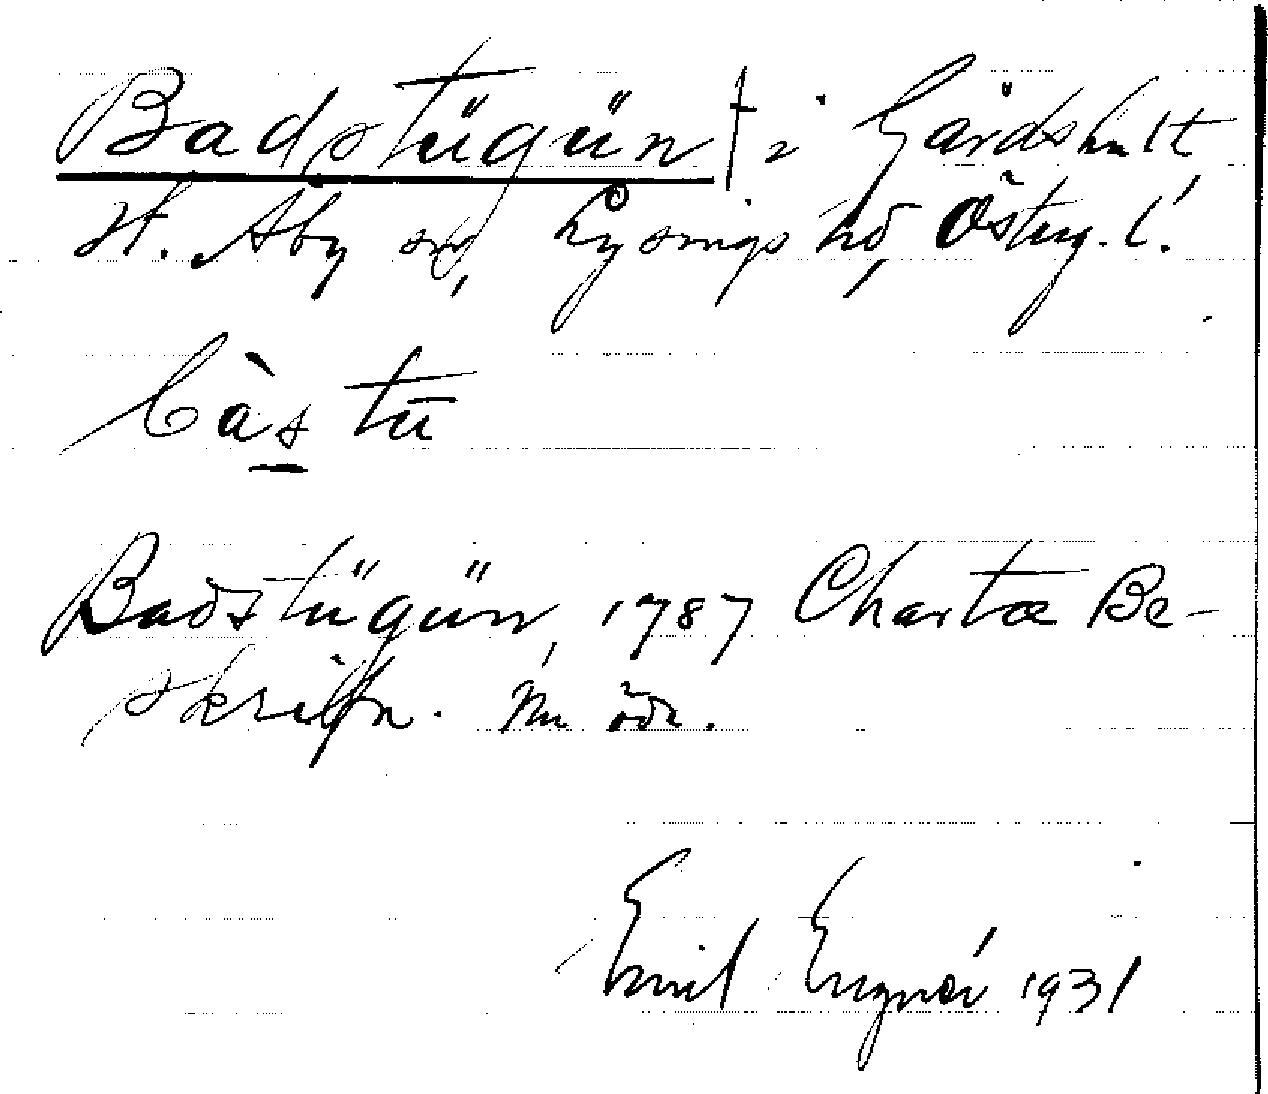 Badstügün † i Gärdshult
St. Åby sn, Lysings hd, Österg. l.
bàs tū
Badstügün, 1787 Chartæ Be-
skrifn. Nu öde.
Emil Engnér 1931